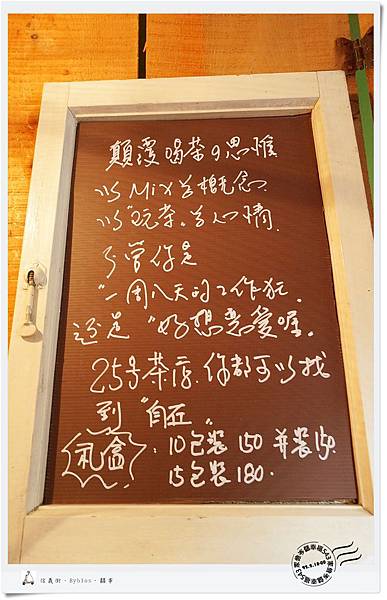 顛覆喝茶の思惟
以Mix为概念
以"玩茶"为心情
不管你是
"一周八天的工作狂"
還是"好想戀愛喔"
25号茶店.你都可以找
到"自在"
礼盒:10包裝150 并裝150.
15包裝180.
信義街·Byblos·囍事